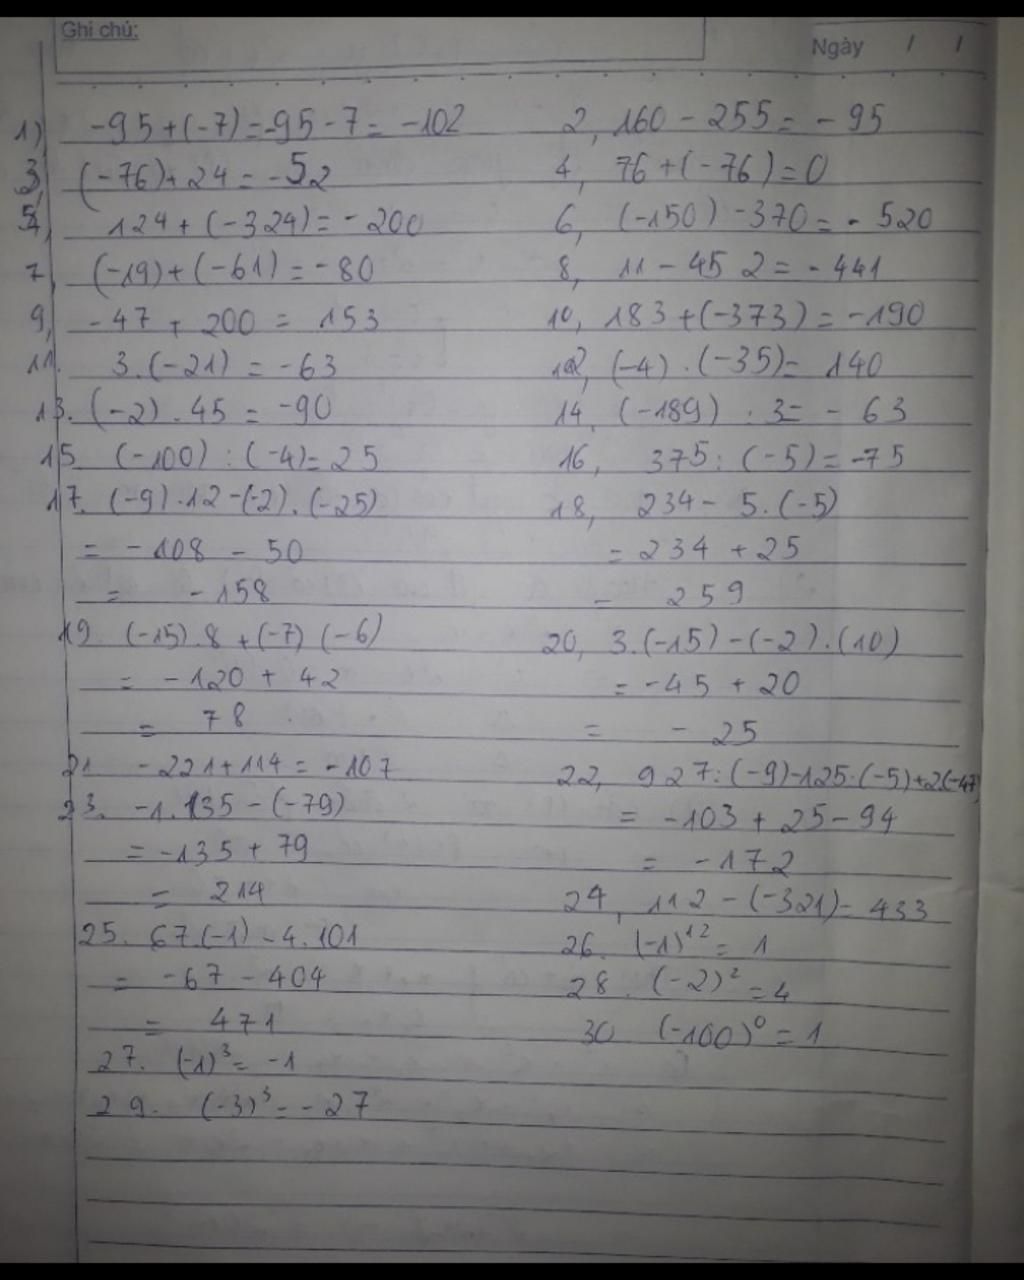 Ghi chú:
Ngày / /
1) -95+(-7)=-95-7=-102 2, 160-255=-95
3, (-76)+24=-52 4, 76+(-76)=0
5, 124+(-324)=-200 6, (-150)-370=-520
7, (-19)+(-61)=-80 8, 11-452=-441
9, -47+200=153 10, 183+(-373)=-190
11. 3.(-21)=-63 12, (-4).(-35)=140
13. (-2).45=-90 14, (-189):3=-63
15. (-100):(-4)=25 16, 375:(-5)=-75
17. (-9).12-(-2).(-25) 18, 234-5.(-5)
= -108-50 = 234+25
= -158 = 259
19. (-15).8+(-7)(-6) 20, 3.(-15)-(-2).(10)
= -120+42 = -45+20
= 78 = -25
21. -221+114=-107 22, 927:(-9)-125:(-5)+2.(-47)
23. -1.135-(-79) = -103+25-94
= -135+79 = -172
= 214 24, 112-(-321)=433
25. 67.(-1)-4.101 26. (-1)¹²=1
= -67-404 28. (-2)²=4
= 471 30 (-100)⁰=1
27. (-1)³=-1
29. (-3)³=-27